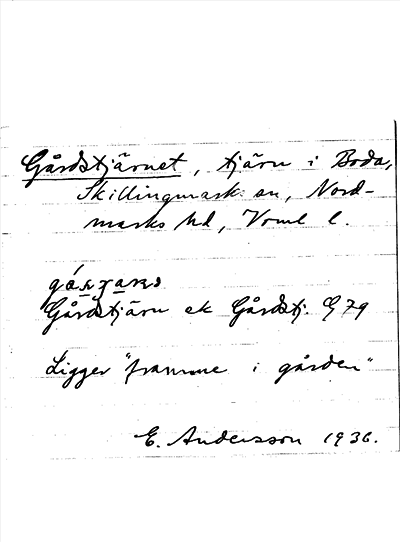 Gårdstjärnet, tjärn i Boda,
Skillingmark: sn, Nord-
marks hd, Vrml l.
Gårdstjärn ek Gårdstj. G 79
Ligger "framme i gården"
E. Andersson 1936.